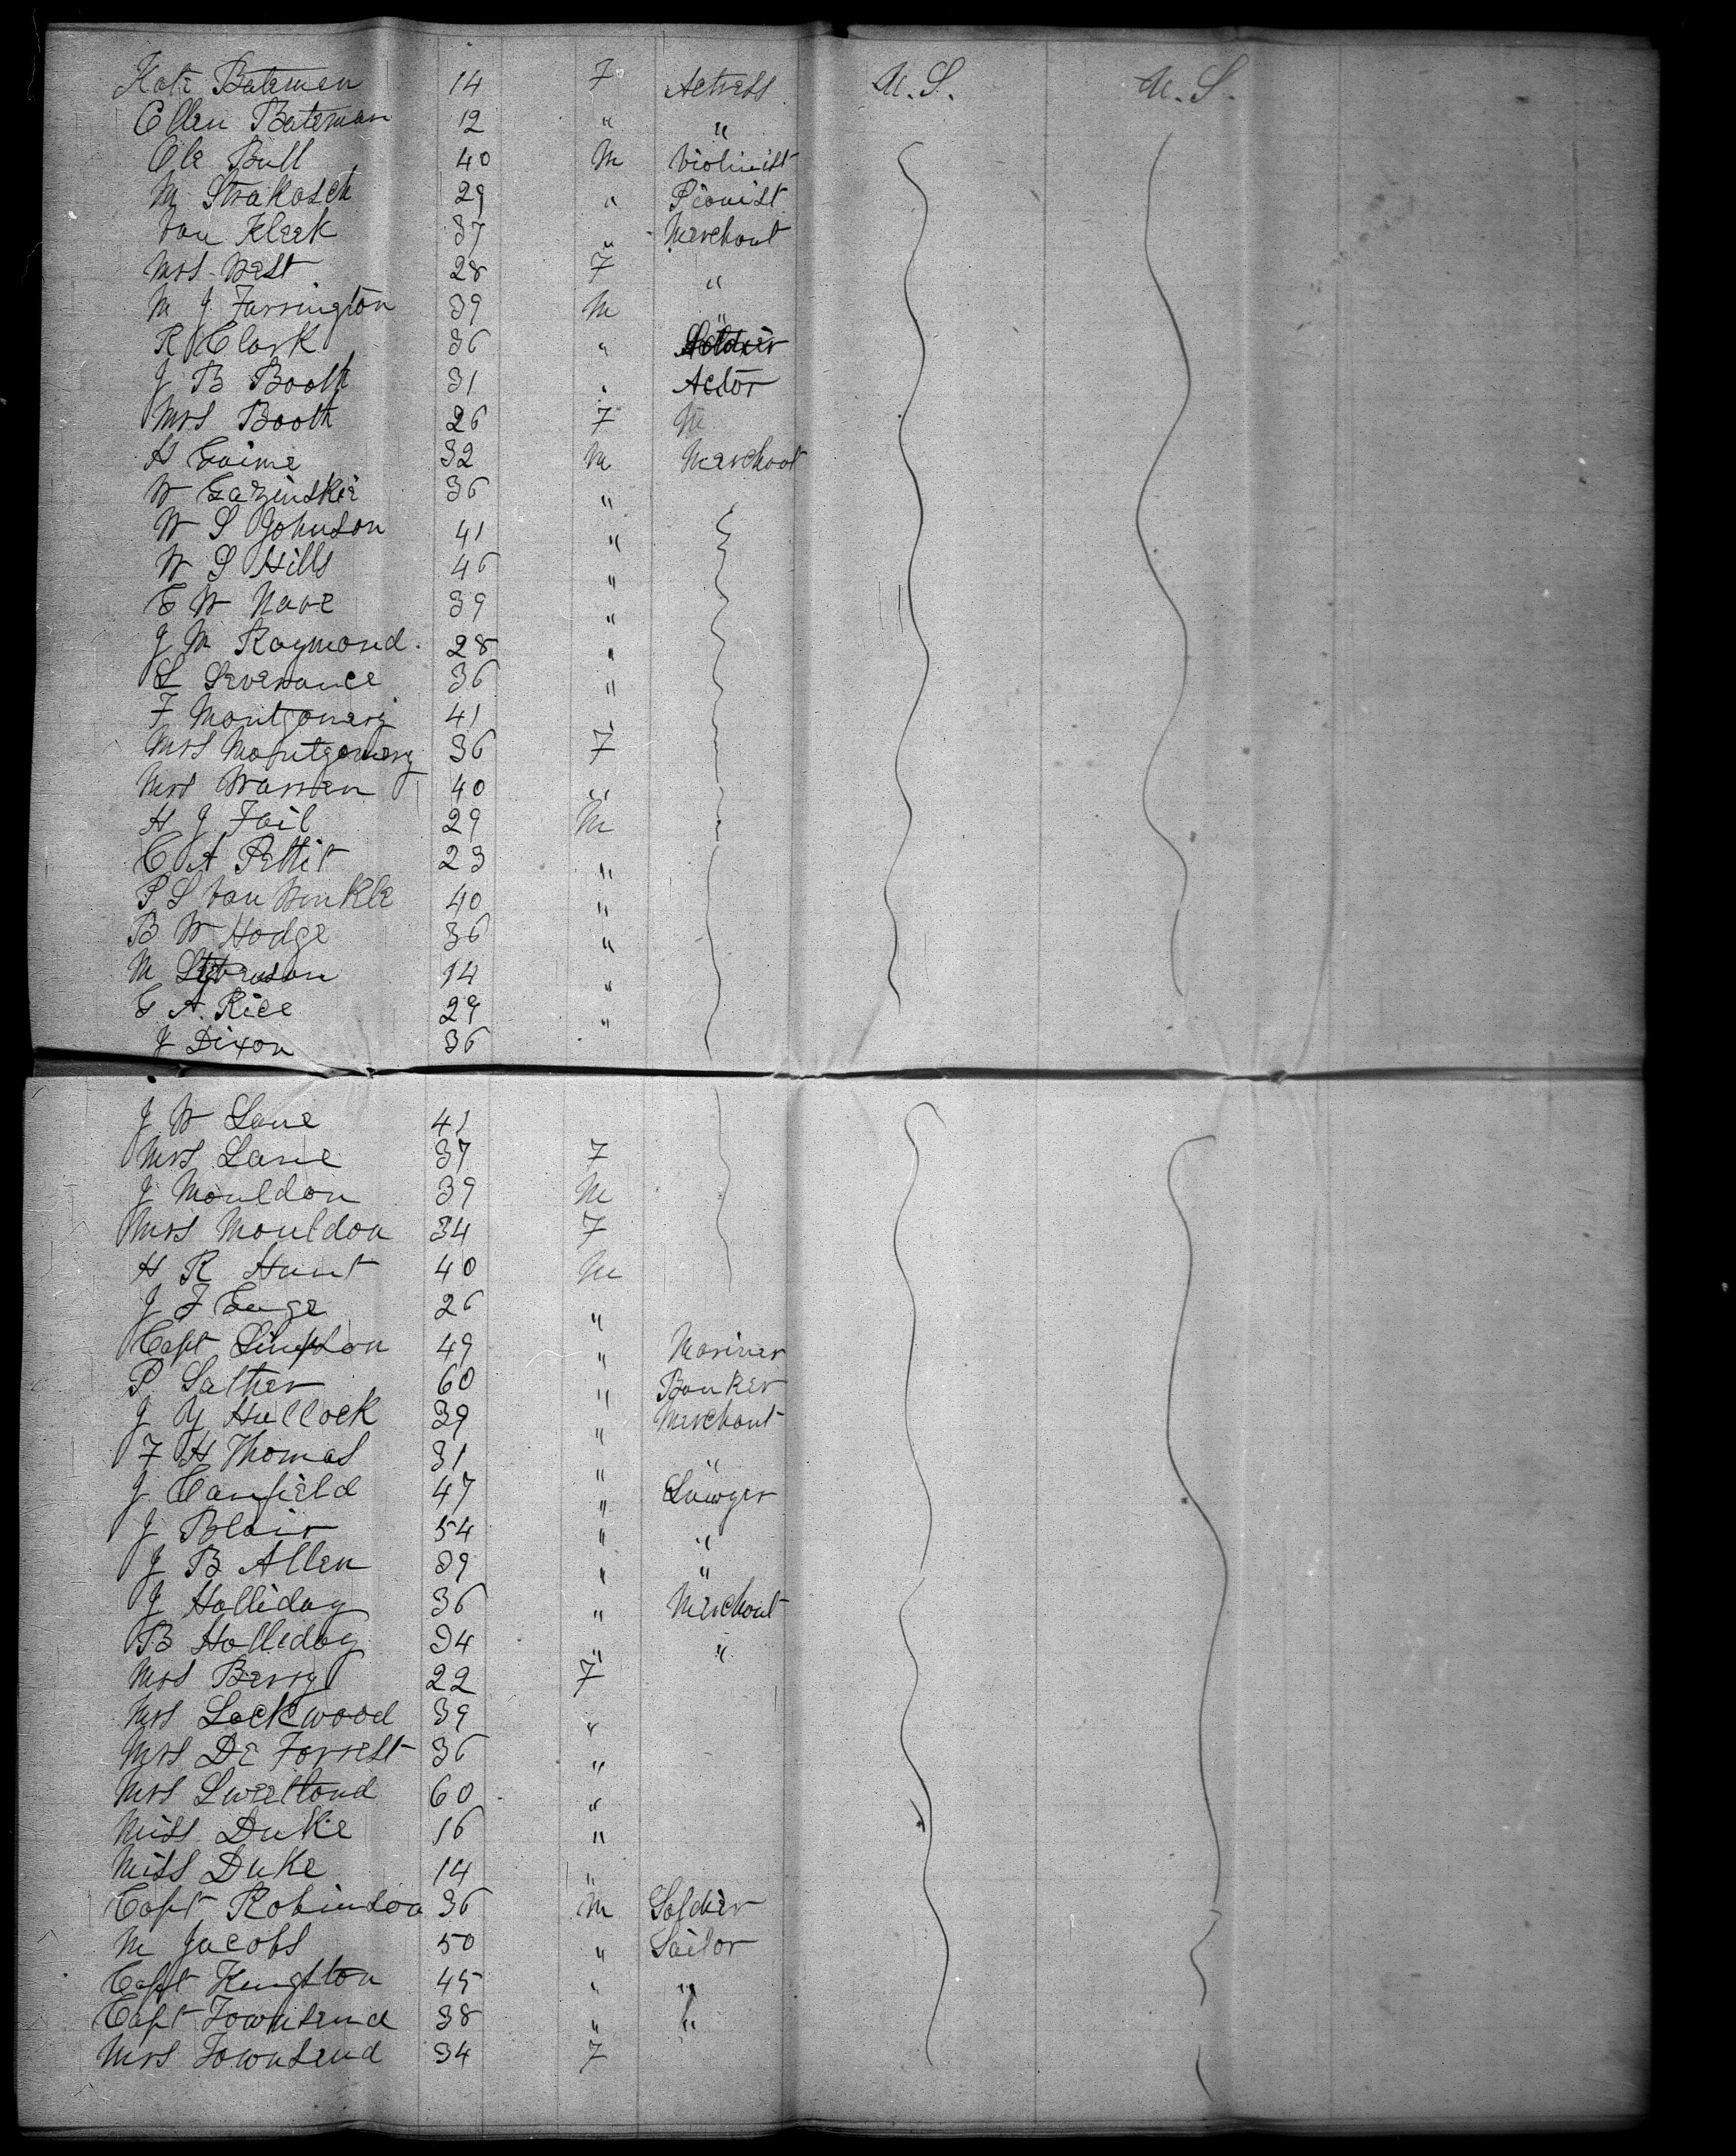 Kate Bateman 14 F Actress U.S. U.S.
Ellen Bateman 12 " "
Ole Bull 40 M Violinist
M Strakosch 29 " Pianist
Van Kleek 37 " Merchant
Mrs West 28 F "
M J Farrington 39 M "
R Clark 36 "
J B Booth 31 " Actor
Mrs Booth 26 F
H 32 M Merchant
W 36 "
W S Johnson 41 "
W S Hills 46 "
W Nave 39 "
J M Raymond. 28 "
L Severance 36 "
F Montgomery 41 "
Mrs Montgomery 36 F
Mrs Warren 40 "
H J Fail 29 M
C A Pettit 23 "
P S Van Winkle 40 "
B W Hodge 36 "
M 14 "
A. Rice 29 "
J Dixon 36
J W Lane 41
Mrs Lane 37 F
J Mouldon 39 M
Mrs Mouldon 34 F
H R Hunt 40 M
J F 26 "
Capt Simpson 49 " Mariner
P Sather 60 " Banker
J Y Hallock 39 " Merchant
F H Thomas 31 " "
J Canfield 47 " Lawyer
J Blair 54 " "
J B Allen 39 " "
J Holliday 36 " Merchant
B Holliday 34 " "
Mrs Berry 22 F
Mrs Lockwood 39 "
Mrs De Forrest 36 "
Mrs Sweetland 60 "
Miss Duke 16 "
Miss Duke 14 "
Capt Robinson 36 M Soldier
M Jacobs 50 " Sailor
Capt Kingston 45 " "
Capt Townsend 38 " "
Mrs Townsend 34 F